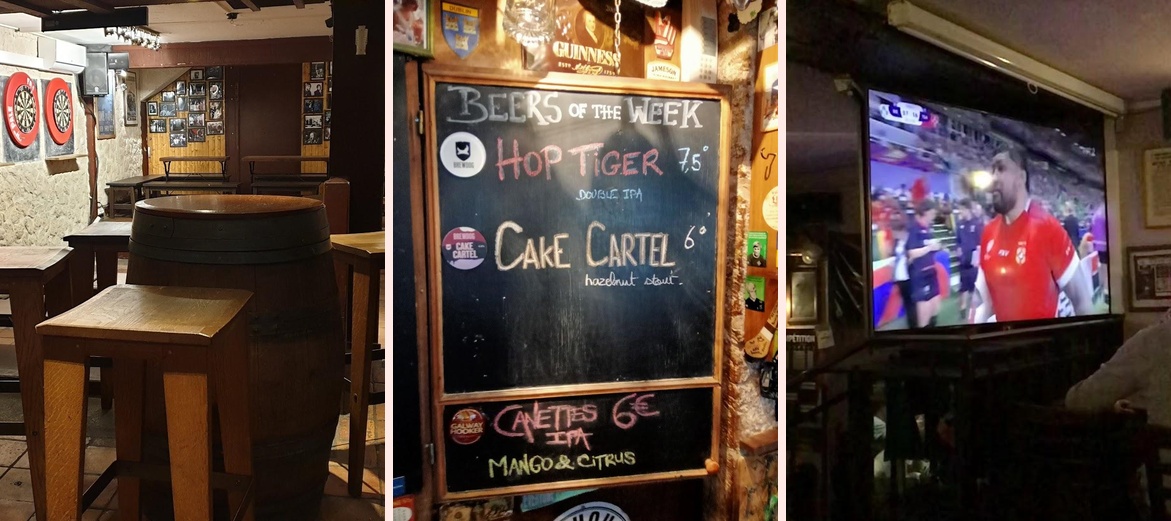 DUBLIN
GUINNESS
JAMESON
BEERS OF THE WEEK
BREWDOG
HOP TIGER 7,5°
DOUBLE IPA
BREWDOG
CAKE
CARTEL
CAKE CARTEL 6°
hazelnut stout.
GALWAY
HOOKER
CANETTES 6€
IPA
MANGO & CITRUS